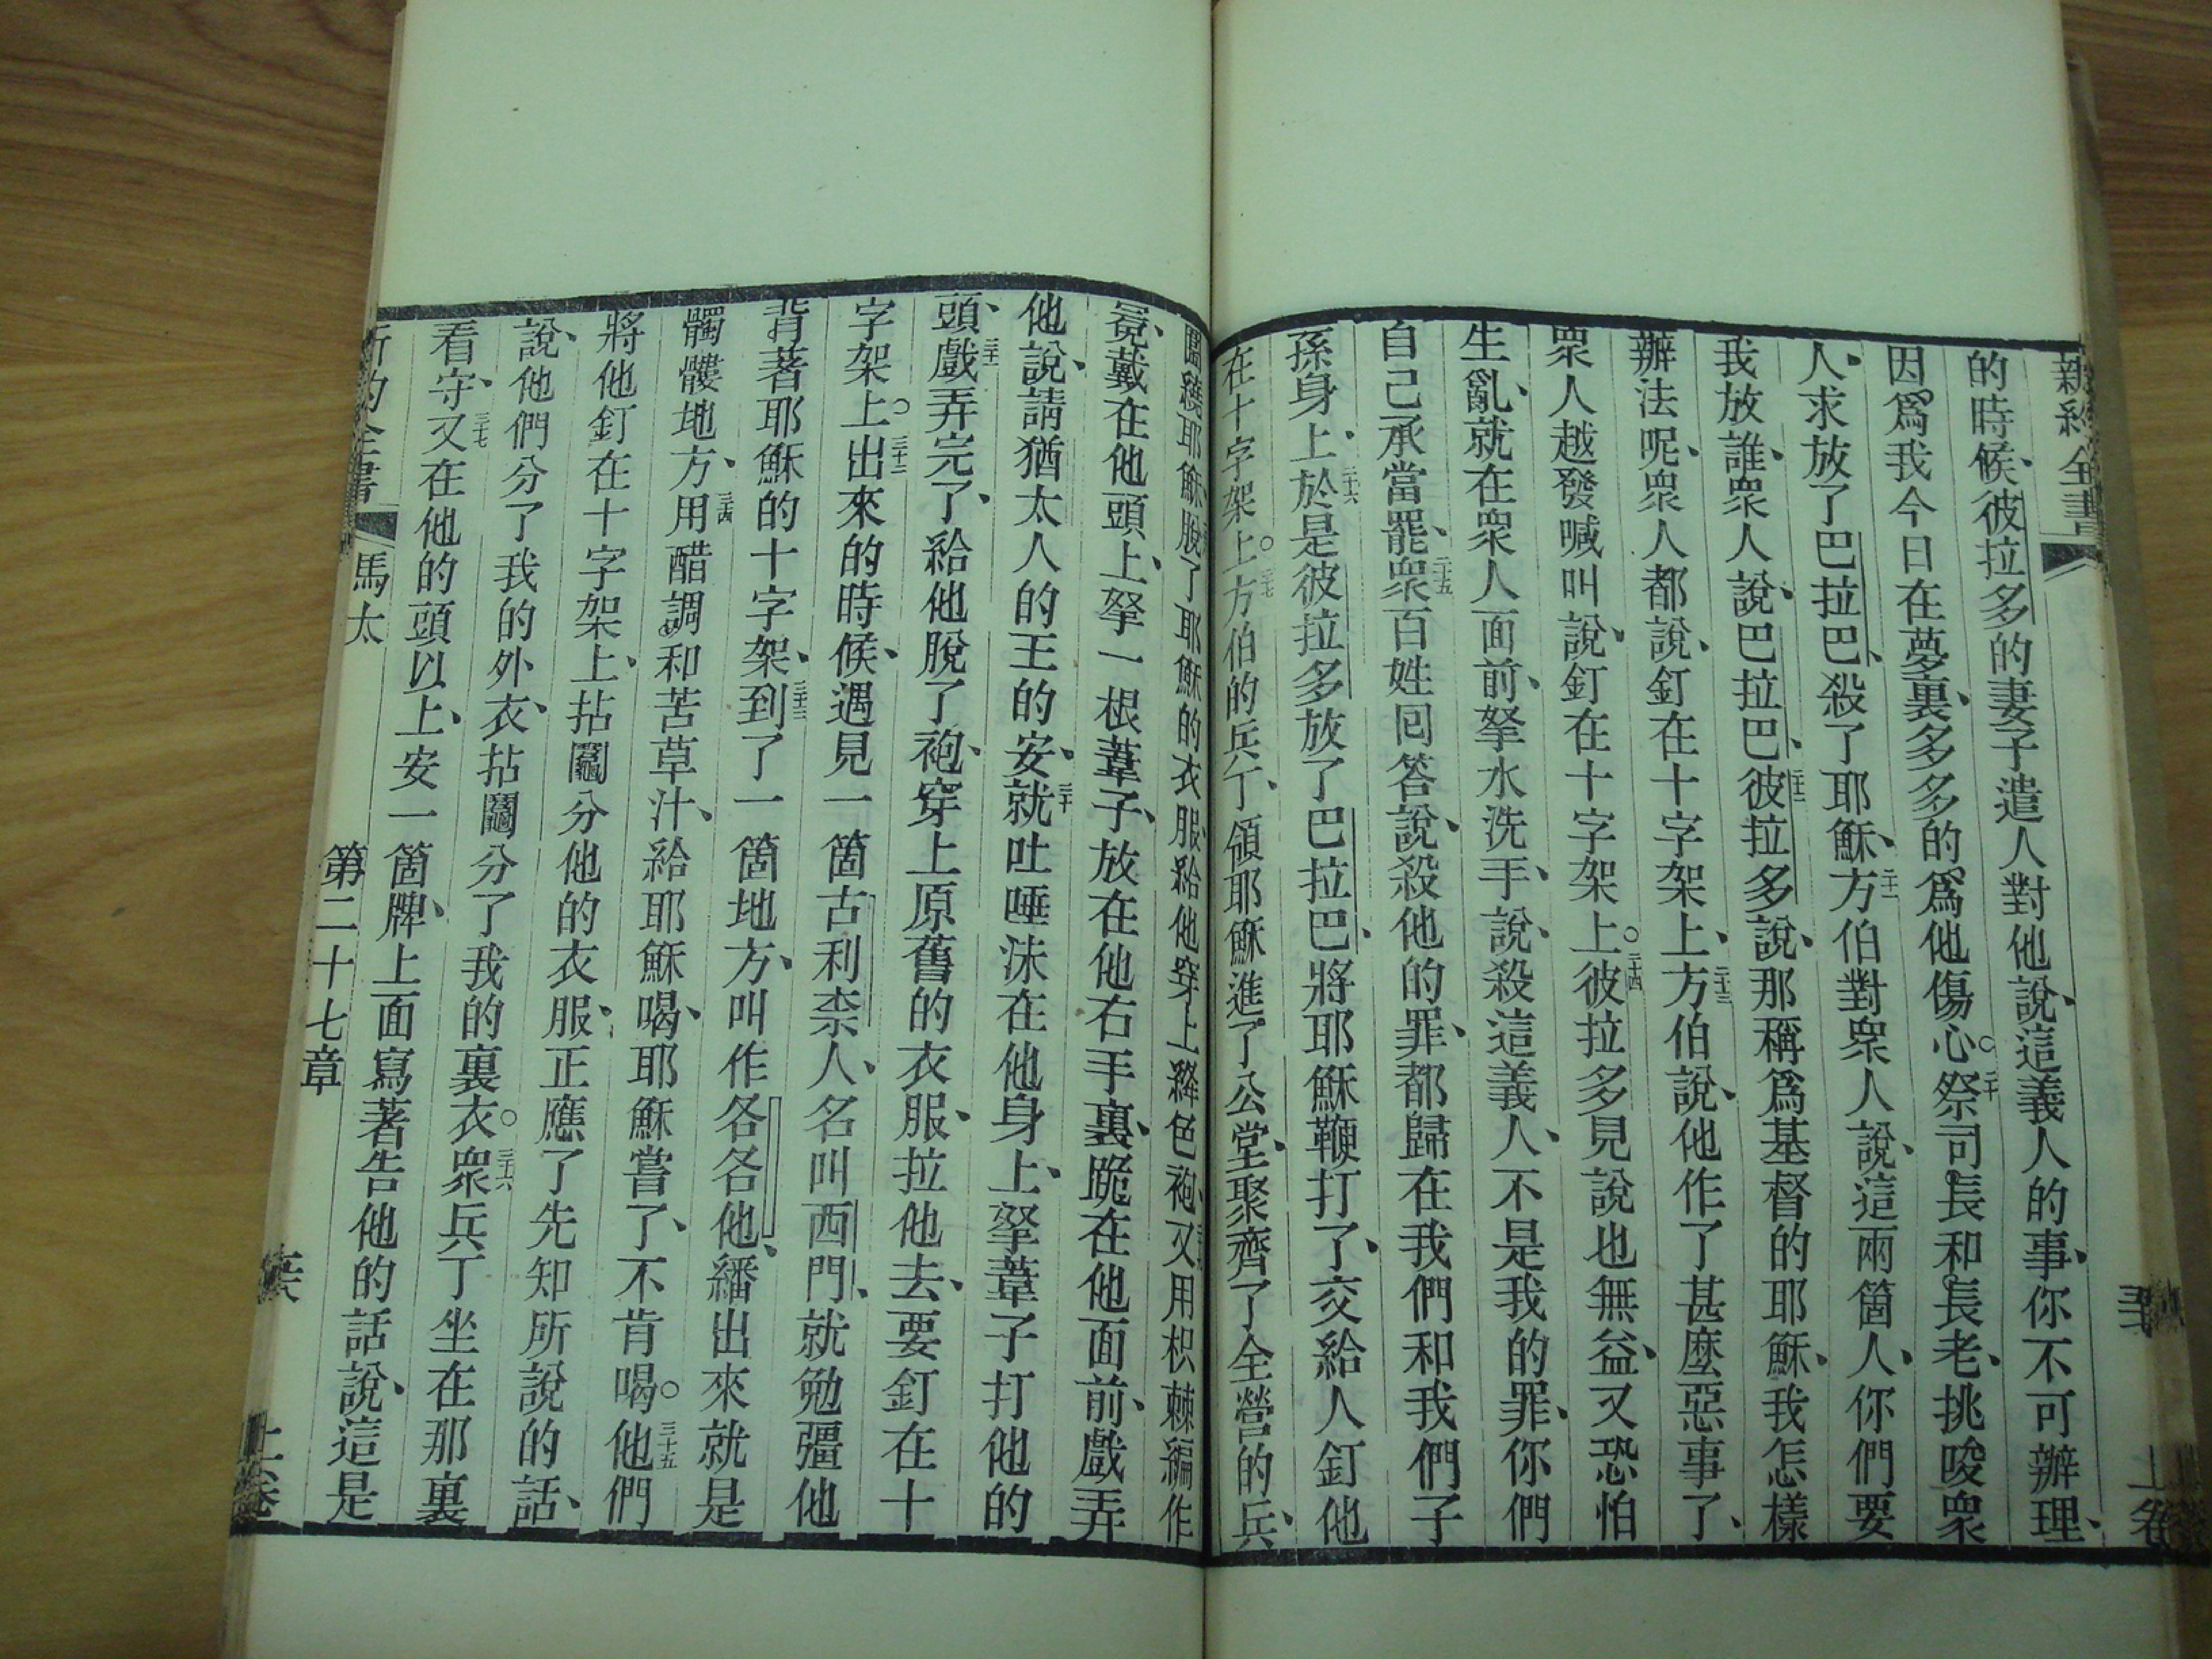 新約全書
上卷
的時候、彼拉多的妻子遣人對他說、這義人的事、你不可辦理、
因爲我今日在夢裏、多多的爲他傷心○二十祭司長和長老、挑唆衆
人、求放了巴拉巴、殺了耶穌、二十一方伯對衆人說、這兩箇人、你們要
我放誰、衆人說、巴拉巴、二十二彼拉多說、那稱爲基督的耶穌、我怎樣
辦法呢、衆人都說、釘在十字架上、二十三方伯說、他作了甚麼惡事了、
衆人越發喊叫說、釘在十字架上○二十四彼拉多見說也無益、又恐怕
生亂、就在衆人面前、拏水洗手、說、殺這義人、不是我的罪、你們
自己承當罷、二十五衆百姓回答說、殺他的罪、都歸在我們和我們子
孫身上、二十六於是彼拉多放了巴拉巴、將耶穌鞭打了、交給人釘他
在十字架上○二十七方伯的兵丁、領耶穌進了公堂、聚齊了全營的兵、
圍繞耶穌、脫了耶穌的衣服、給他穿上絳色袍、又用枳棘編作
冕、戴在他頭上、拏一根葦子、放在他右手裏、跪在他面前、戲弄
他說、請猶太人的王的安、三十就吐唾沫在他身上、拏葦子打他的
頭、三十一戲弄完了、給他脫了袍、穿上原舊的衣服、拉他去、要釘在十
字架上○三十二出來的時候、遇見一箇古利柰人、名叫西門、就勉彊他
背著耶穌的十字架、三十三到了一箇地方、叫作各各他、繙出來就是
髑髏地方、三十四用醋調和苦草汁、給耶穌喝、耶穌嘗了、不肯喝○三十五他們
將他釘在十字架上、拈鬮分他的衣服、正應了先知所說的話、
說、他們分了我的外衣、拈鬮分了我的裏衣○三十六衆兵丁坐在那裏
看守、三十七又在他的頭以上、安一箇牌、上面寫著告他的話說、這是
新約全書 馬太 第二十七章 上卷